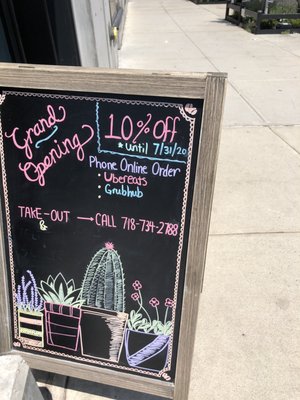 Grand
Opening
10% off
*until 7/31/20
Phone Online Order
• Ubereats
• Grubhub
TAKE-OUT → CALL 718-734-2788
&